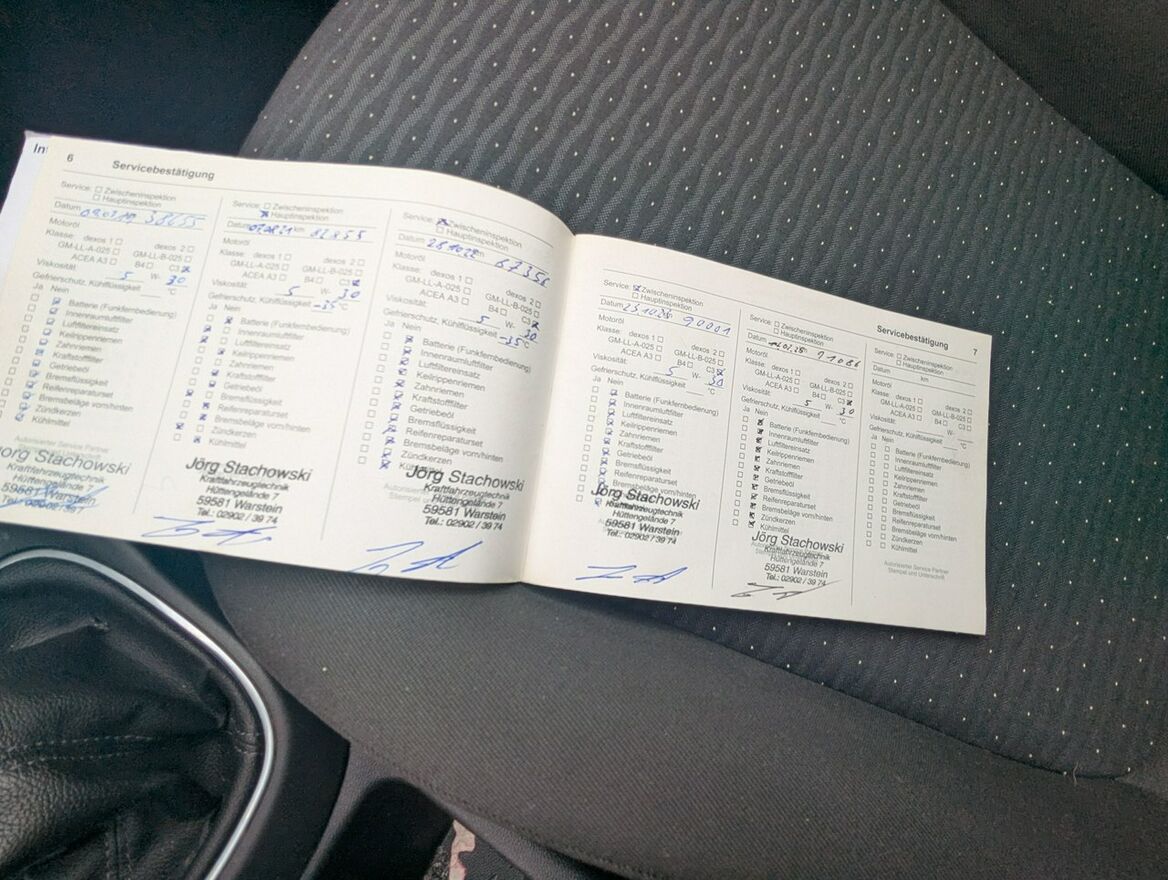 In
6 Servicebestätigung
Service: Zwischeninspektion
Hauptinspektion
Datum
Motoröl
Klasse: dexos 1 dexos 2
GM-LL-A-025 GM-LL-B-025
ACEA A3 B4 C3
Viskosität: 5 W- 30
Gefrierschutz, Kühlflüssigkeit °C
Ja Nein
Batterie (Funkfernbedienung)
Innenraumluftfilter
Luftfiltereinsatz
Keilrippenriemen
Zahnriemen
Kraftstofffilter
Getriebeöl
Bremsflüssigkeit
Reifenreparaturset
Bremsbeläge vorn/hinten
Zündkerzen
Kühlmittel
Jörg Stachowski
Kraftfahrzeugtechnik
Hüttengelände 7
59581 Warstein
Service: Zwischeninspektion
Hauptinspektion
Datum km
Motoröl
Klasse: dexos 1 dexos 2
GM-LL-A-025 GM-LL-B-025
ACEA A3 B4 C3
Viskosität: 5 W- 30
Gefrierschutz, Kühlflüssigkeit -35 °C
Ja Nein
Batterie (Funkfernbedienung)
Innenraumluftfilter
Luftfiltereinsatz
Keilrippenriemen
Zahnriemen
Kraftstofffilter
Getriebeöl
Bremsflüssigkeit
Reifenreparaturset
Bremsbeläge vorn/hinten
Zündkerzen
Kühlmittel
Jörg Stachowski
Kraftfahrzeugtechnik
Hüttengelände 7
59581 Warstein
Tel.: 02902 / 39 74
Service: Zwischeninspektion
Hauptinspektion
Datum km
Motoröl
Klasse: dexos 1 dexos 2
GM-LL-A-025 GM-LL-B-025
ACEA A3 B4 C3
Viskosität: 5 W- 30
Gefrierschutz, Kühlflüssigkeit -35 °C
Ja Nein
Batterie (Funkfernbedienung)
Innenraumluftfilter
Luftfiltereinsatz
Keilrippenriemen
Zahnriemen
Kraftstofffilter
Getriebeöl
Bremsflüssigkeit
Reifenreparaturset
Bremsbeläge vorn/hinten
Zündkerzen
Jörg Stachowski
Kraftfahrzeugtechnik
Hüttengelände 7
59581 Warstein
Tel.: 02902 / 39 74
Servicebestätigung 7
Service: Zwischeninspektion
Hauptinspektion
Datum 90001
Motoröl
Klasse: dexos 1 dexos 2
GM-LL-A-025 GM-LL-B-025
ACEA A3 B4 C3
Viskosität: 5 W- 30
Gefrierschutz, Kühlflüssigkeit °C
Ja Nein
Batterie (Funkfernbedienung)
Innenraumluftfilter
Luftfiltereinsatz
Keilrippenriemen
Zahnriemen
Kraftstofffilter
Getriebeöl
Bremsflüssigkeit
Reifenreparaturset
Bremsbeläge vorn/hinten
Jörg Stachowski
Kraftfahrzeugtechnik
Hüttengelände 7
59581 Warstein
Tel.: 02902 / 39 74
Service: Zwischeninspektion
Hauptinspektion
Datum
Motoröl
Klasse: dexos 1 dexos 2
GM-LL-A-025 GM-LL-B-025
ACEA A3 B4 C3
Viskosität: 5 W- 30
Gefrierschutz, Kühlflüssigkeit °C
Ja Nein
Batterie (Funkfernbedienung)
Innenraumluftfilter
Luftfiltereinsatz
Keilrippenriemen
Zahnriemen
Kraftstofffilter
Getriebeöl
Bremsflüssigkeit
Reifenreparaturset
Bremsbeläge vorn/hinten
Zündkerzen
Kühlmittel
Jörg Stachowski
Kraftfahrzeugtechnik
Hüttengelände 7
59581 Warstein
Tel.: 02902 / 39 74
Service: Zwischeninspektion
Hauptinspektion
Datum km
Motoröl
Klasse: dexos 1 dexos 2
GM-LL-A-025 GM-LL-B-025
ACEA A3 B4 C3
Viskosität: W-
Gefrierschutz, Kühlflüssigkeit °C
Ja Nein
Batterie (Funkfernbedienung)
Innenraumluftfilter
Luftfiltereinsatz
Keilrippenriemen
Zahnriemen
Kraftstofffilter
Getriebeöl
Bremsflüssigkeit
Reifenreparaturset
Bremsbeläge vorn/hinten
Zündkerzen
Kühlmittel
Autorisierter Service Partner
Stempel und Unterschrift